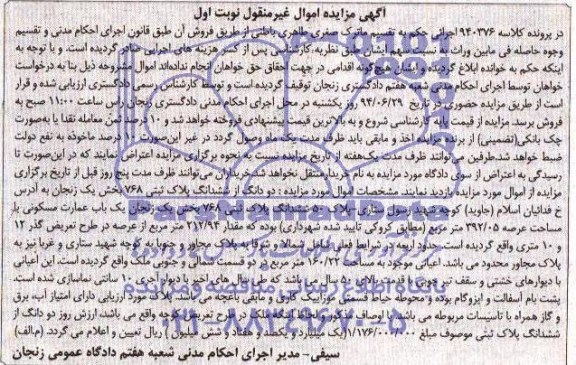 آگهی مزایده اموال غیرمنقول نوبت اول
در پرونده کلاسه ۹۴۰۳۷۶ اجرائی حکم به تقسیم ماترک صغری طاهری باطنی از طریق فروش آن طبق قانون اجرای احکام مدنی و تقسیم
وجوه حاصله فی مابین وراث به نسبت سهم ایشان طبق نظریه کارشناس پس از کسر هزینه های اجرایی صادر گردیده است، و با توجه به
اینکه حکم به خوانده ابلاغ گردیده و ایشان هیچ گونه اقدامی در جهت احقاق حق خواهان انجام نداده‌اند اموال مشروحه ذیل بنا به درخواست
خواهان توسط اجرای احکام مدنی شعبه هفتم دادگستری زنجان توقیف گردیده است و توسط کارشناس رسمی دادگستری ارزیابی شده و قرار
است از طریق مزایده حضوری در تاریخ ۹۴/۰۶/۲۹ روز یکشنبه در محل اجرای احکام مدنی دادگستری زنجان راس ساعت ۱۱:۰۰ صبح به
فروش برسد. مزایده از قیمت پایه کارشناسی شروع و به بالاترین قیمت پیشنهادی فروخته خواهد شد و ۱۰ درصد ثمن معامله نقدا یا بصورت
چک بانکی(تضمینی) از برنده مزایده اخذ و مابقی باید ظرف مدت یک ماه وصول گردد در غیر این‌صورت ۱۰ درصد ماخوذه به نفع دولت
ضبط خواهد شد.طرفین می‌توانند ظرف مدت یک‌هفته از تاریخ مزایده نسبت به نحوه برگزاری مزایده اعتراض نمایند که در این‌صورت تا
رسیدگی به اعتراض از سوی دادگاه مورد مزایده به نام خریدار منتقل نخواهد شد.خریداران می‌توانند ظرف مدت پنج روز قبل از تاریخ برگزاری
مزایده از اموال مورد مزایده بازدید نمایند. مشخصات اموال مورد مزایده : دو دانگ از ششدانگ پلاک ثبتی ۷۶۸ بخش یک زنجان به آدرس
خ فدائیان اسلام (جاوید) کوچه شهید رسول ستاری-پلاک ۵۰ ششدانگ پلاک ثبتی ۷۶۸ بخش یک زنجان یک باب عمارت مسکونی با
مساحت عرصه ۳۹۲/۰۵ متر مربع (مطابق کروکی تایید شده شهرداری) بوده که مقدار ۲۱۲/۹۴ متر مربع از عرصه در طرح تعریض گذر ۱۲
و ۱۰ متری واقع گردیده است. حدود اربعه در شرایط فعلی شامل شمالا و شرقا به پلاک مجاور و جنوبا به کوچه شهید ستاری و غربا نیز به
پلاک مجاور محدود می باشد. اعیانی موجود به مساحت ۱۶۰/۲۲ متر مربع در دو قسمت شمالی و جنوبی ملک واقع گردیده است. این اعیانی
با دیوارهای خشتی و سقف تیر چوبی با قدمت بالای ۵۰ سال می باشد که طی سال های اخیر با دیوار آجری ۱۰ سانتی نماسازی شده است.
پشت بام آسفالت و ایزوگام بوده و محوطه حیاط قسمتی موزاییک کاری و مابقی باغچه می باشد. پلاک مورد ارزیابی دارای امتیاز آب، برق
و گاز همراه با تاسیسات مربوطه می باشد. با اوصاف مذکور و لحاظ اینکه ملک در طرح تعریض کوچه واقع می باشد، ارزش روز دو دانگ از
ششدانگ پلاک ثبتی موصوف مبلغ ۱/۱۷۶/۰۰۰/۰۰۰ (یک میلیارد و یکصد و هفتاد و شش میلیون ) ریال تعیین و اعلام می گردد. (م/الف)
سیفی- مدیر اجرای احکام مدنی شعبه هفتم دادگاه عمومی زنجان
ParsNamadData
۰۲۱-۸۸۳۴۹۶۷۰-۵